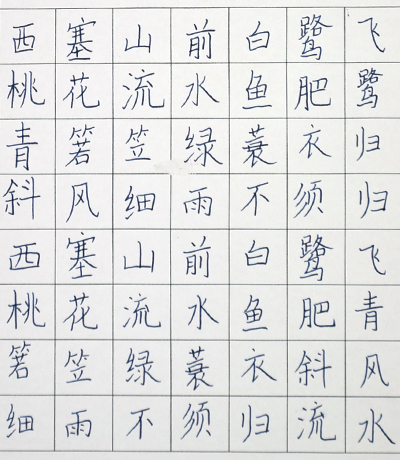 西塞山前白鹭飞
桃花流水鱼肥鹭
青箬笠绿蓑衣归
斜风细雨不须归
西塞山前白鹭飞
桃花流水鱼肥青
箬笠绿蓑衣斜风
细雨不须归流水